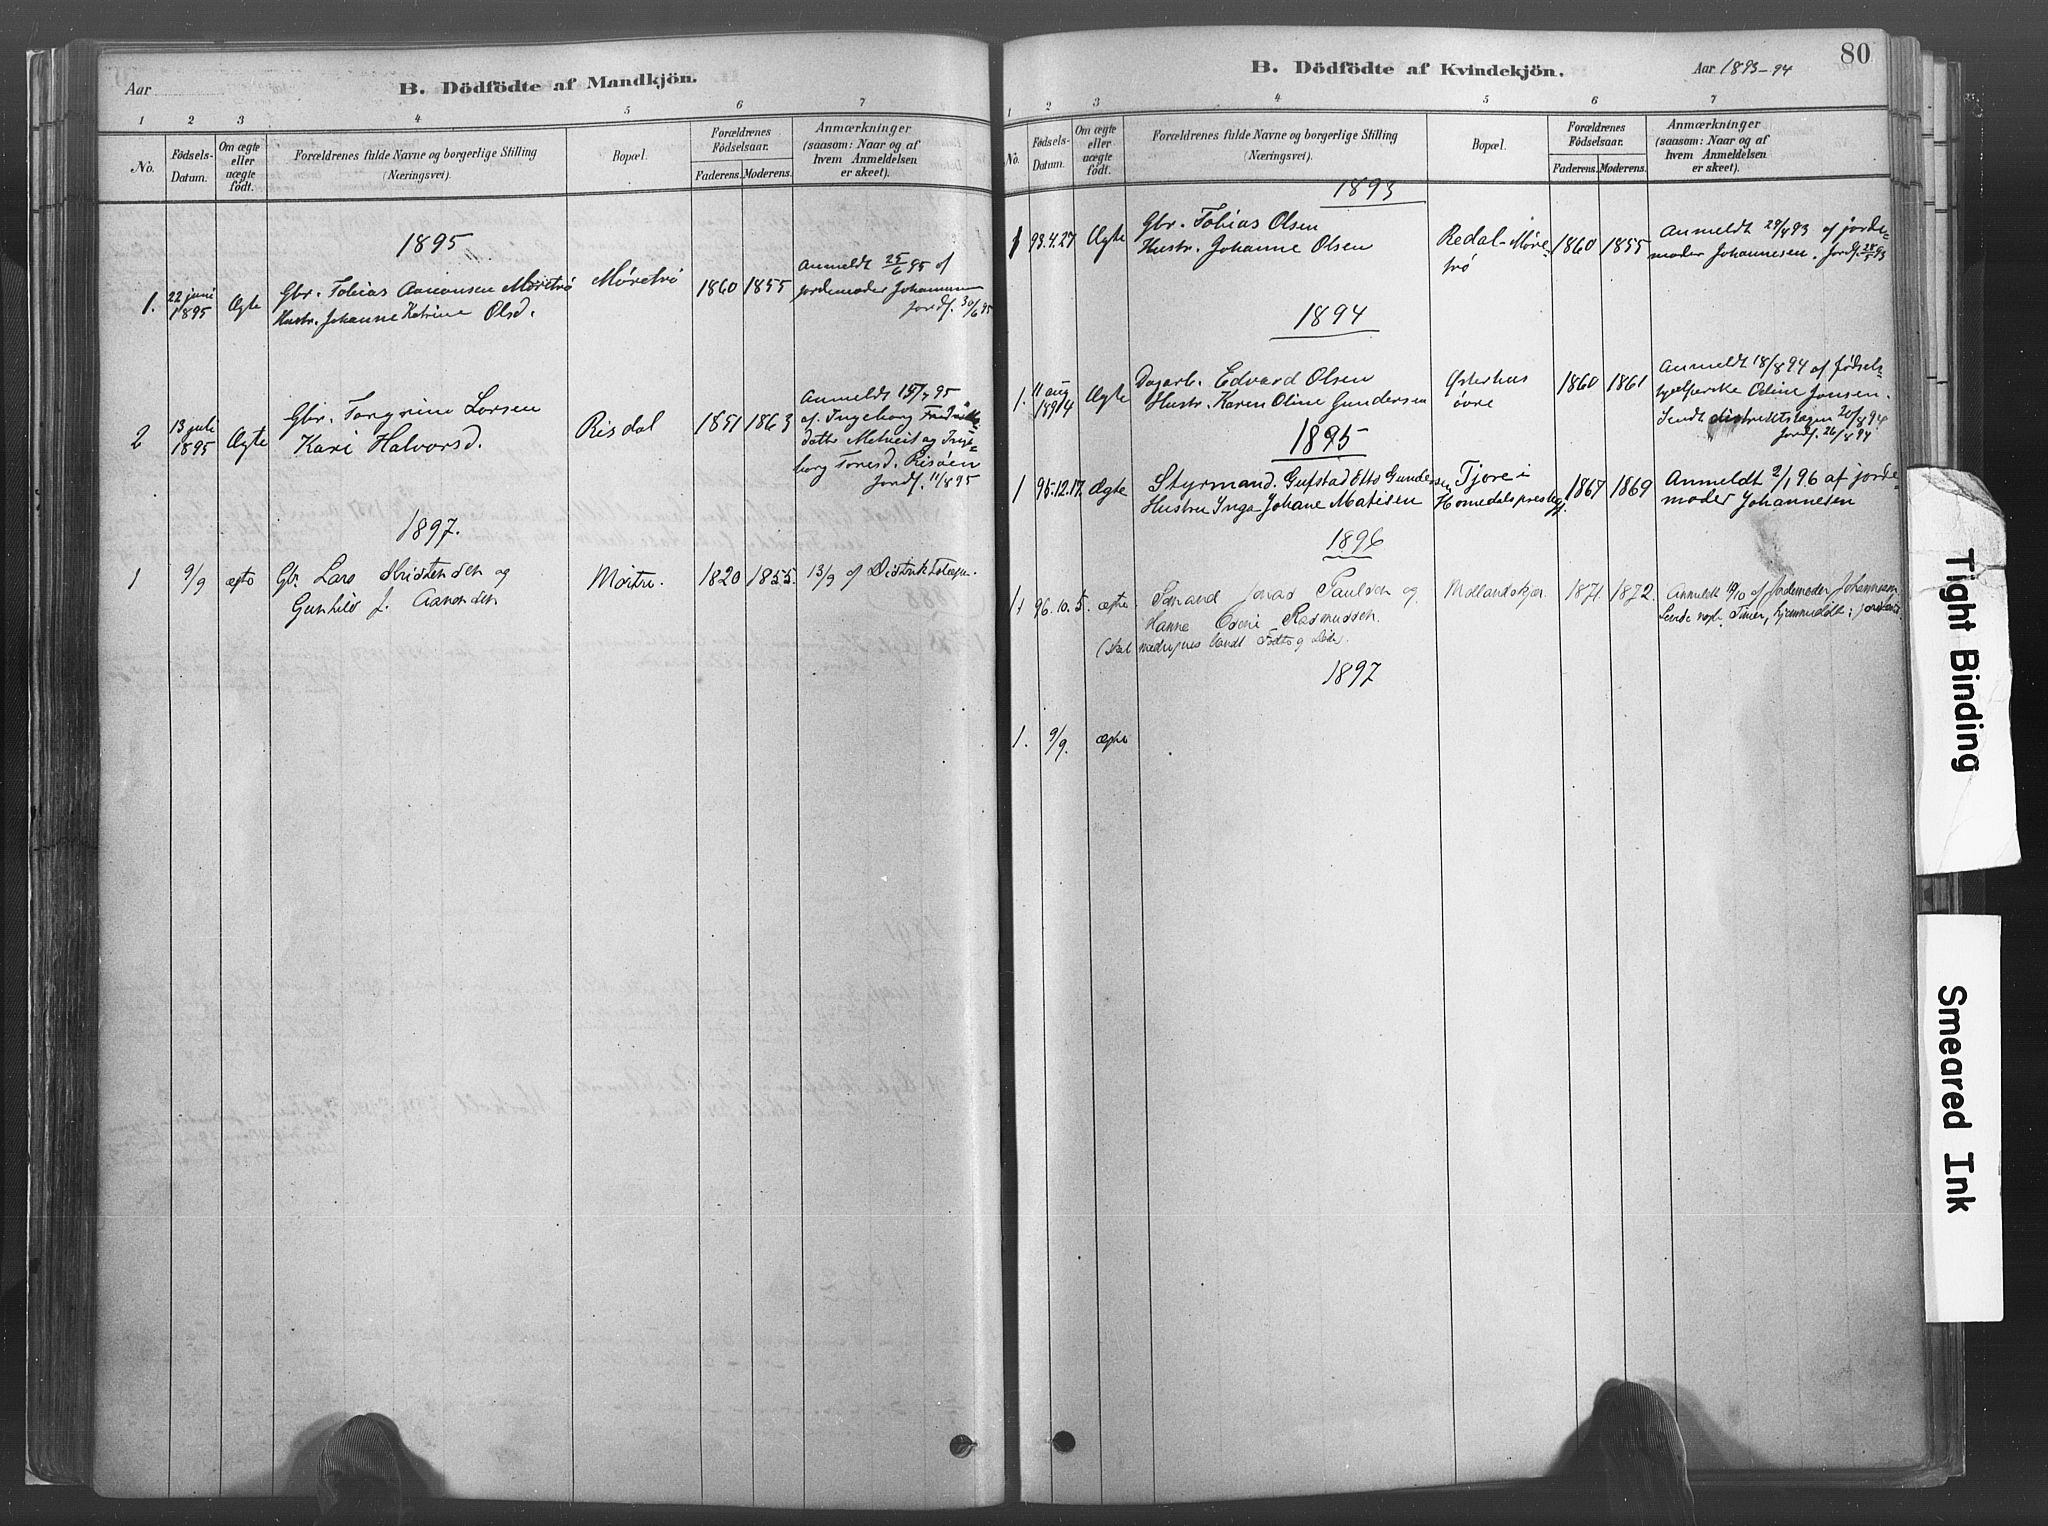 Aar
B. Dödfödte af Mandkjön.
1 2 3 4 5 6 7
No.
Födsels-Datum.
Om ægte eller uægte födt.
Forældrenes fulde Navne og borgerlige Stilling (Næringsvei).
Bopæl.
Forældrenes Födselsaar.
Faderens. Moderens.
Anmærkninger (saasom: Naar og af hvem Anmeldelsen er skeet).
1895
1. 22 juni 1895 Ægte
Gbr. Tobias Aanonsen Møretrø
Hustr. Johanne Katrine Olsd.
Møretrø 1860 1855
Anmeldt 25/6 95 af
jordemoder Johannesen
Jordf. 30/6 95
2 13 juli 1895 Ægte
Gbr. Torgrim Larsen
Kari Halvorsd.
Risdal 1851 1863
Anmeldt 15/7 95
af Ingeborg
Risöen
Jordf. 11/8 95
1897.
1 9/9 ægte
Gbr. Lars Kristensen og
Gunhild J. Aanonsen
Møitrø. 1820 1855.
13/9 af Distriktslægen.
80
B. Dödfödte af Kvindekjön.
Aar 1893-94
1 2 3 4 5 6 7
No.
Födsels-Datum.
Om ægte eller uægte födt.
Forældrenes fulde Navne og borgerlige Stilling (Næringsvei).
Bopæl.
Forældrenes Födselsaar.
Faderens. Moderens.
Anmærkninger (saasom: Naar og af hvem Anmeldelsen er skeet).
1893
1 93.4.27 Ægte
Gbr. Tobias Olsen
Hustr. Johanne Olsen
Redal-Møre-
trø
1860 1855
Anmeldt 29/4 93 af jorde-
moder Johannesen. Jordf. 28/5 93
1894
1. 11 aug 1894 Ægte
Dagarb. Edvard Olsen
Hustr. Karen Oline Gundersen
Østerhus
øvre
1860 1861
Anmeldt 18/8 94 af fødsels-
hjælperske Oline Jonsen.
Sendt distriktslægen 20/8 94
Jordf. 26/8 94
1895
1 95.12.17. Ægte
Styrmand. Gustav Otto Gundersen
Hustru Inga Johane Matisen
Tjore i
Homedals prestegj.
1867 1869
Anmeldt 2/1 96 af jorde
moder Johannesen
1896
1 96.10.5. ægte
Sømand Jonas Paulsen og
Hanne Osine Rasmussen.
(skal medregnes blandt Födte og Döde).
Mollandskjær
1871. 1872.
Anmeldt 10/10 af Jordemoder Johannesen
Levde nogle Timer, hjemmedöbt;
1897
1. 9/9. ægte
Tight Binding
Smeared Ink